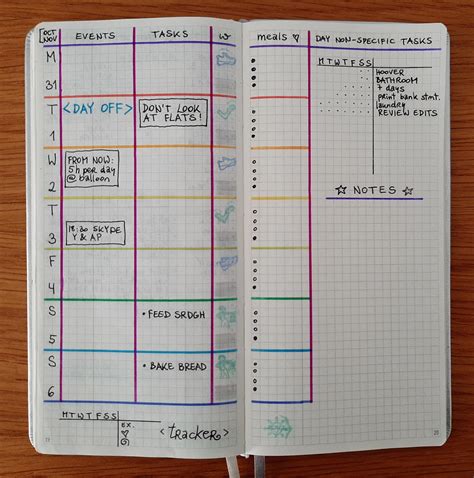 OCT
NOV
EVENTS
TASKS
W
M
31
T
<DAY OFF>
DON'T LOOK
AT FLATS!
1
W
FROM NOW:
5h per day
@balloon
2
T
18:30 SKYPE
Y & AP
3
F
4
S
• FEED SRDGH
5
S
• BAKE BREAD
6
MTWTFSS
EX.
<tracker>
meals ♡
DAY NON-SPECIFIC TASKS
MTWTFSS
HOOVER
BATHROOM
7 days
print bank stmt.
laundry
REVIEW EDITS
☆ NOTES ☆